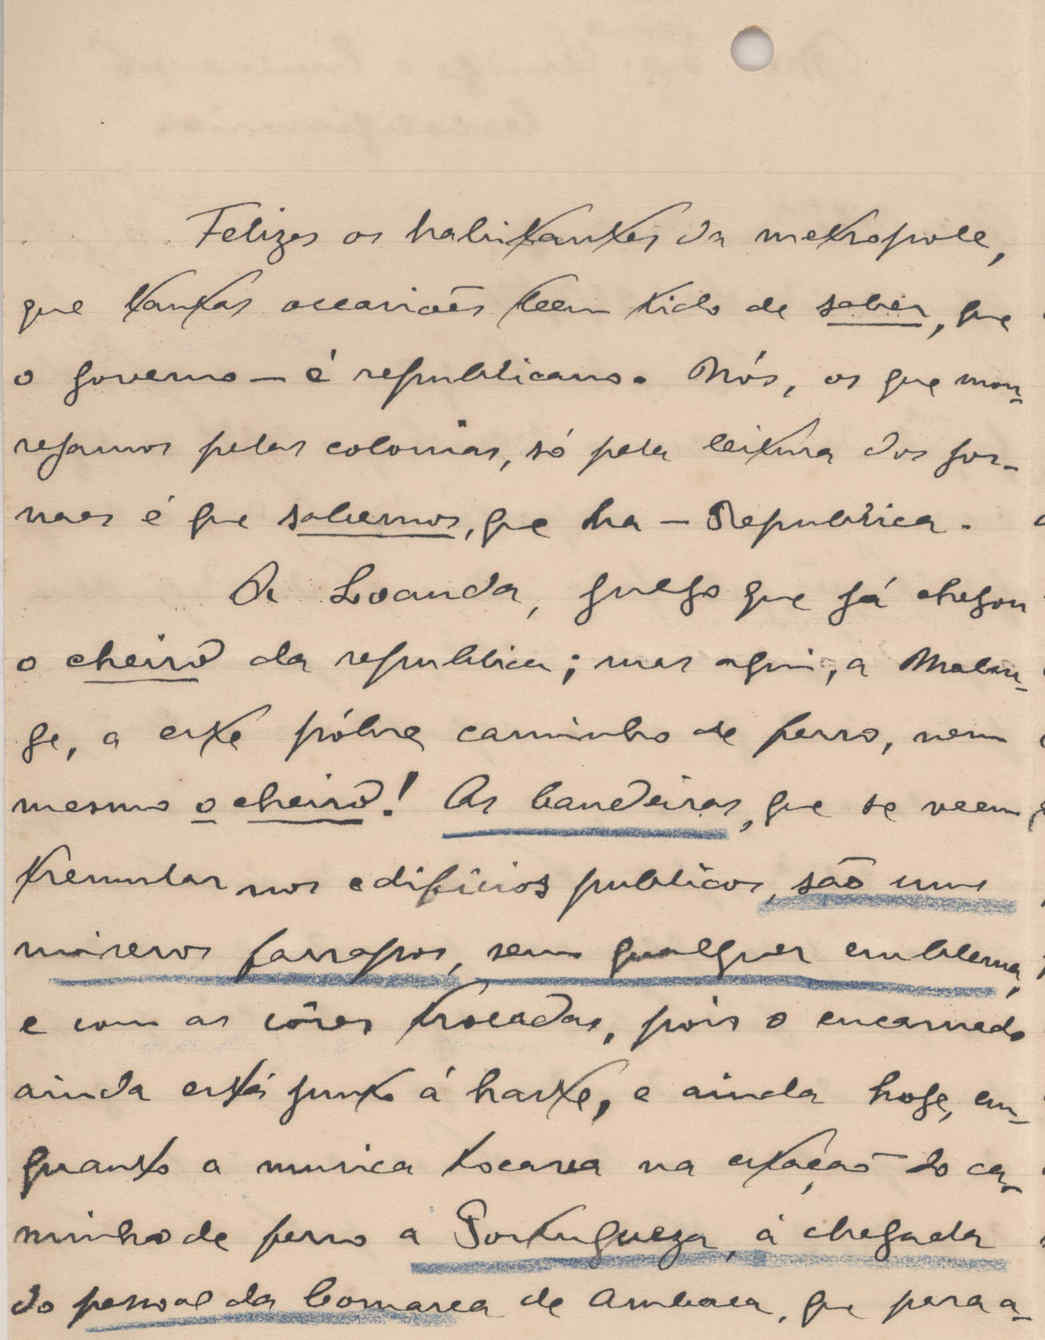 Felizes os habitantes da metropole,
que tantas occasiões teem tido de saber, que
o governo — é republicano. Nós, os que mou-
rejamos pelas colonias, só pela leitura dos jor-
naes é que sabemos, que ha — Republica.
A Loanda, julgo que já chegou
o cheiro da republica; mas aqui, a Malan-
ge, a este pobre caminho de ferro, nem
mesmo o cheiro! As bandeiras, que se veem
tremular nos edificios publicos, são uns
miseros farrapos, sem qualquer emblema,
e com as côres trocadas, pois o encarnado
ainda está junto á haste, e ainda hoje, en-
quanto a musica tocava na estação do ca-
minho de ferro a Portugueza, á chegada
do pessoal da Comarca de Ambaca, que para a-